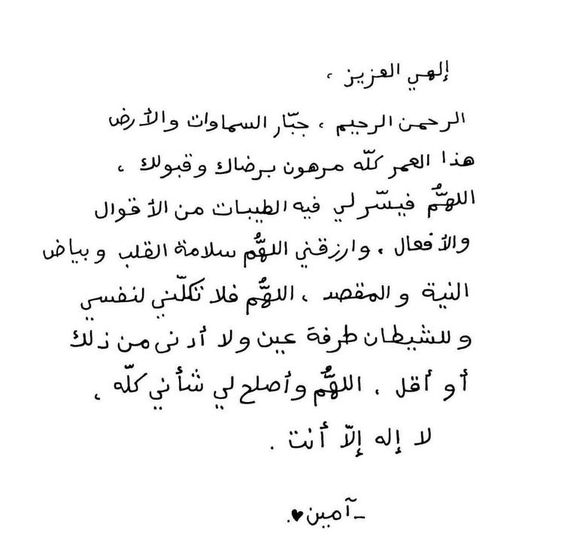 إلهي العزيز ،
الرحمن الرحيم ، جبّار السماوات والأرض
هذا العمر كلّه مرهون برضاك وقبولك ،
اللهمُّ فيسّر لي فيه الطيبات من الأقوال
والأفعال ، وارزقني اللهمُّ سلامة القلب وبياض
النية والمقصد ، اللهمُّ فلا تكلّني لنفسي
وللشيطان طرفة عين ولا أدنى من ذلك
أو أقل ، اللهمُّ وأصلح لي شأني كلّه ،
لا إله إلّا أنت .
_آمين♥.